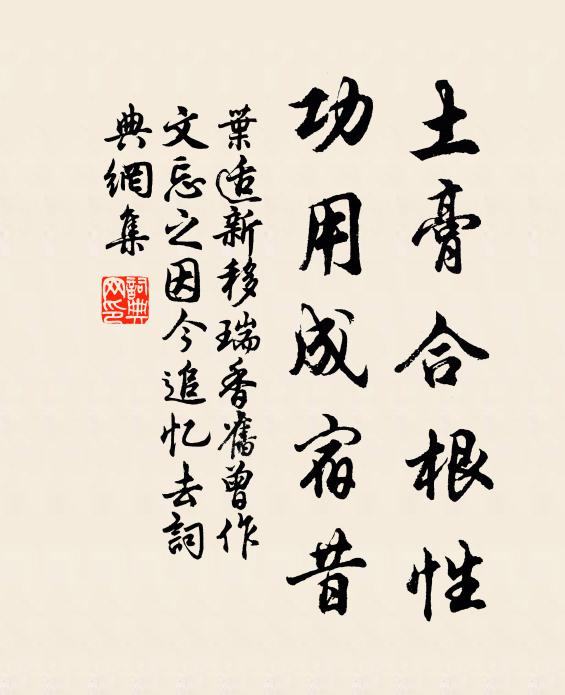 土膏合根性
功用成宿昔
葉适新移瑞香舊曾作
文忘之因今追忆去詞
典網集
詞典網印